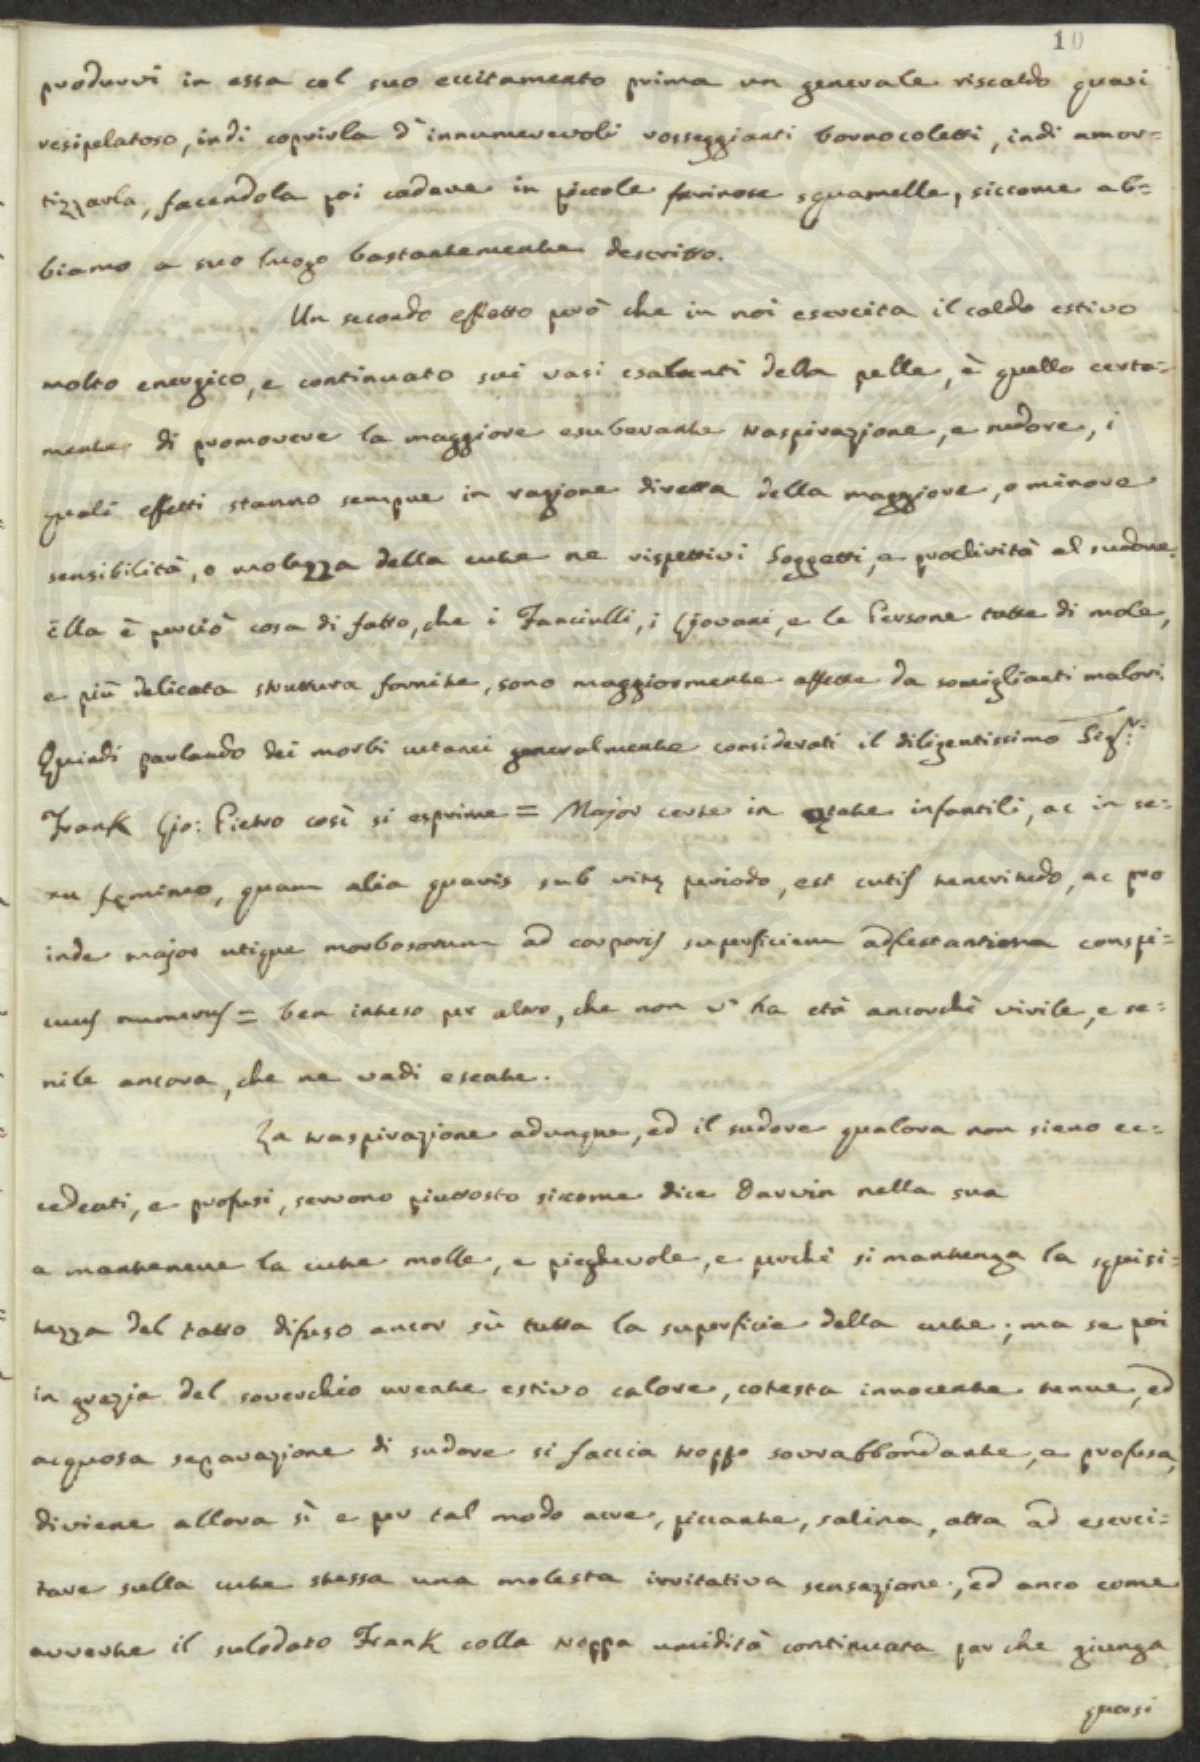 10
produrvi in essa col suo eccitamento prima un generale riscaldo quasi
resipelatoso, indi coprirla d'innumerevoli rosseggianti bornocoletti, indi amor=
tizzarla, facendola poi cadere in piccole farinose squamelle, siccome ab=
biamo a suo luogo bastantemente descritto.
Un secondo effetto però che in noi esercita il caldo estivo
molto energico, e continuato sui vasi esalanti della pelle, è quello certa=
mente di promovere la maggiore esuberante traspirazione, e sudore, i
quali effetti stanno sempre in ragione diretta della maggiore, o minore
sensibilità, o molezza della cute ne rispettivi Soggetti, e proclività al sudore.
Ella è perciò cosa di fatto, che i Fanciulli, i Giovani, e le Persone tutte di mole,
e più delicata struttura fornite, sono maggiormente affette da somiglianti malori.
Quindi parlando dei morbi cutanei generalmente considerati il diligentissimo Sigr:
Frank Gio: Pietro così si esprime = Major certe in ętate infantili, ac in se=
xu fęmineo, quam alia quavis sub vitę periodo, est cutis teneritudo, ac pro
inde major utique morbosorum ad corporis superficiem adfectantium conspi=
cuus numerus = ben inteso per altro, che non v'ha età ancorchè virile, e se=
nile ancora, che ne vadi esente.
La traspirazione adunque, ed il sudore qualora non sieno ec=
cedenti, e profusi, servono piuttosto siccome dice Darvin nella sua
a mantenere la cute molle, e pieghevole, e perchè si mantenga la squisi=
tezza del tatto difuso ancor sù tutta la superficie della cute; ma se poi
in grazia del soverchio urente estivo calore, cotesta innocente tenue, ed
acquosa separazione di sudore si faccia troppo sovrabbondante, e profusa,
diviene allora sì e per tal modo acre, piccante, salina, atta ad eserci=
tare sulla cute stessa una molesta irritativa sensazione, ed anco come
avverte il sulodato Frank colla troppa umidità continuata par che giunga
quasi